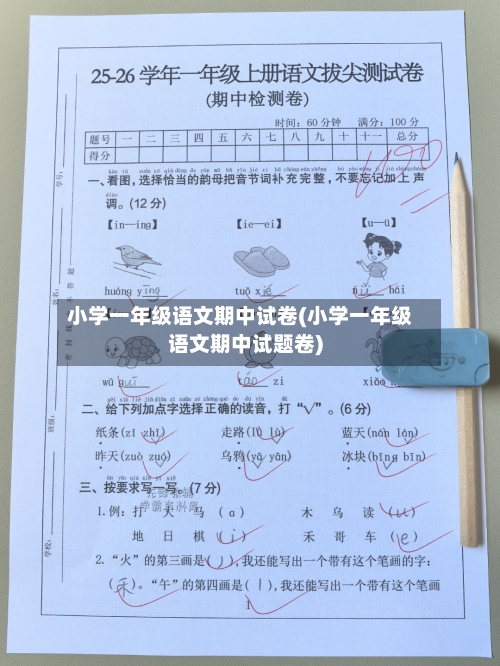 25-26学年一年级上册语文拔尖测试卷
(期中检测卷)
时间：60分钟 满分：100分
题号 一 二 三 四 五 六 七 八 九 十 十一 总分
得分
100
一、看图，选择恰当的韵母把音节词补充完整，不要忘记加上声
调。(12分)
【in—ing】 【ie—ei】 【u—ü】
huáng yīng tuō xié nǚ hái
小学一年级语文期中试卷(小学一年级
语文期中试题卷)
wū guī táo zi
二、给下列加点字选择正确的读音，打“√”。(6分)
纸条(zǐ zhǐ) 走路(lù lǜ) 蓝天(nán lán)
昨天(zuò zuó) 乌鸦(yā yān) 冰块(bīng bīn)
三、按要求写一写。(7分)
1.例：打 大 马 (a) 木 乌 读 (u)
地 日 棋 (i) 禾 哥 车 (e)
2.“火”的第三画是(丿)，我还能写出一个带有这个笔画的字：
(禾)。“午”的第四画是(丨)，我还能写出一个带有这个笔画
1